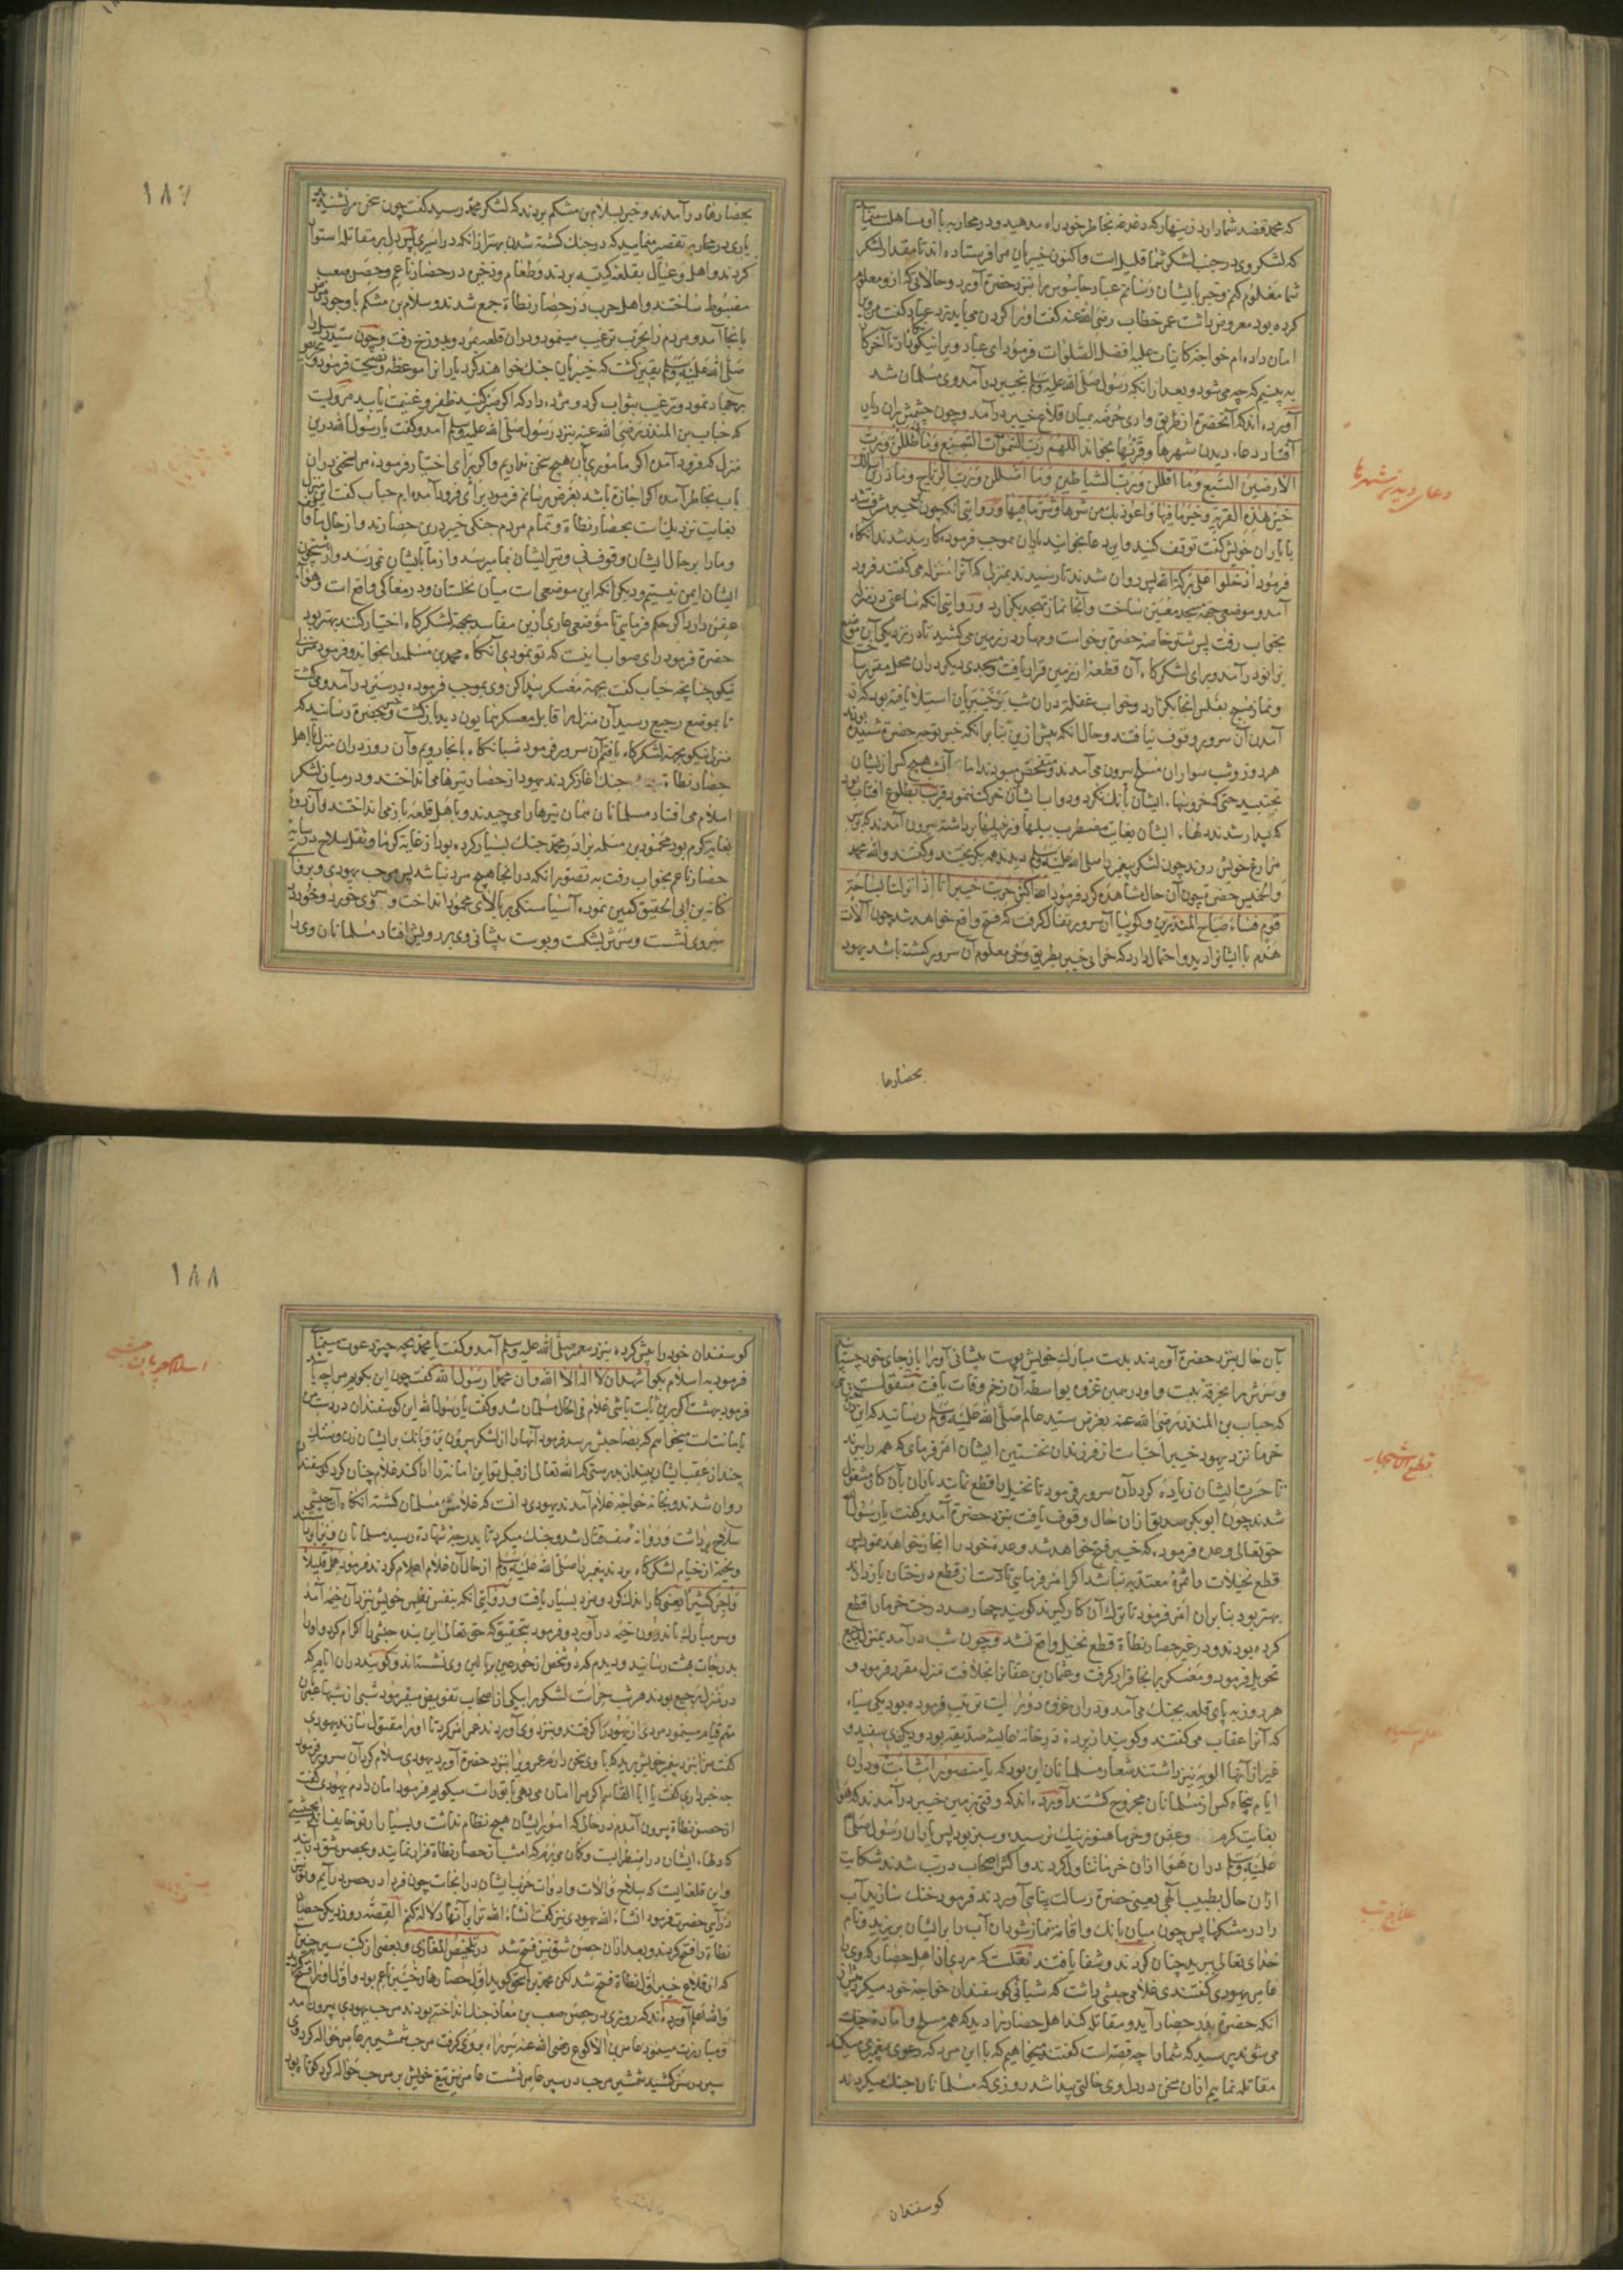 که محمد قصد شما دارد زینهار که دغدغه بخاطر خود راه مدهید و در محاربه با او مساهلت منمایید
که لشکر وی در جنب لشکر شما قلیل است و اکنون خیبریان مرا فرستاده اند تا مقدار لشکر
شما معلوم کنم و خبر بایشان رسانم عباد جاسوس را نزد حضرة آورد و حالاتی که ازو معلوم
کرده بود معروض داشت عمر خطاب رضی الله عنه گفت او را گردن می باید زد عباد گفت من ویرا
امان داده ام خواجه کاینات علیه افضل الصلوات فرمود ای عباد ویرا نیکو بازدار تا آخر کار
به بینیم که چه می شود و بعد از آنکه رسول صلی الله علیه وسلم بخیبر در آمد وی مسلمان شد
آورده اند که آنحضرة از طریق وادی خرصه بمیان قلاع خیبر در آمد و چون چشمش بران دیار
افتاد دعاء دیدن شهرها و قریها بخواند اللهم رب السموات السبع وما اظللن ورب
الارضین السبع وما اقللن ورب الشیاطین وما اضللن ورب الریاح وما ذرین اسألك
خیر هذه القریة وخیر ما فیها واعوذ بك من شرها وشر ما فیها و روایتی آنکه چون خیبر مشرف شد
با یاران خویش گفت توقف کنید و این دعا بخوانید یاران بموجب فرموده کاربند شدند آنگاه
فرمود ادخلوا علی برکة الله پس روان شدند تا رسیدند بمنزلی که آنرا منزله می گفتند فرود
آمد و موضعی جهة مسجد معین ساخت و آنجا نماز تهجد بگزارد و روایتی آنکه ساعتی در منزله
بخواب رفت پس شتر خاصه حضرة برخاست و مهار در زمین می کشید تا در نزدیکی آن موضع
بزانو در آمد و برای لشکرگاه آن قطعه از زمین قرار یافت و مسجدی دیگر در آن محل مقرر ساخت
و نماز صبح بغلس آنجا بگزارد و خواب غفلت در آن شب بر خیبریان استیلا یافته بود که از
آمدن آن سرور وقوف نیافتند و حال آنکه پیش ازین بنا بر آنکه خبر توجه حضرة شنیده بودند
هر روز و شب سواران مسلح بیرون می آمدند و متفحص می بودند اما آن شب هیچ کس از ایشان
نجنبید حتی که خروسهاء ایشان بانگ نکرد و دواب ایشان حرکت ننمود قریب بطلوع آفتاب بود
که بیدار شدند دلهاء ایشان بغایت مضطرب بیلها و زنبیلها برداشته بیرون آمدند که بسر
مزارع خویش روند چون لشکر پیغمبر را صلی الله علیه وسلم دیدند همه بگریختند و گفتند والله محمد
والخمیس حضرة چون آن حال مشاهده کرد فرمود الله اکبر خربت خیبر انا اذا نزلنا بساحة
قوم فساء صباح المنذرین و گوییا آن سرور تفأل گرفت که فتح واقع خواهد شد چون آلات
هدم با ایشان دید و احتمال دارد که خرابی خیبر بطریق وحی معلوم آن سرور گشته باشد یهود
دعای دیدن شهرها
بحصارها
۱۸۷
بحصارها در آمدند و خبر بسلام بن مشکم بردند که لشکر محمد رسید گفت چون سخن من نشنیدید
باری در محاربه تقصیر منمایید که در جنگ کشته شدن بهتر از آنکه در اسیری پس دل بر مقاتله استوار
کردند و اهل و عیال بقلعه کتیبه بردند و طعام و ذخیره در حصار ناعم و حصن صعب
مضبوط ساختند و اهل حرب در حصار نطاة جمع شدند و سلام بن مشکم با وجود مرض
بانجا آمد و مردم را بحرب ترغیب مینمود و در آن قلعه بمرد و بدوزخ رفت و چون سید رسل را
صلی الله علیه وسلم یقین گشت که خیبریان جنگ خواهند کرد یارانرا موعظه و نصیحت فرمود و تحریض
بر جهاد نمود و ترغیب بثواب کرد و مژده داد که اگر صبر کنید ظفر و غنیمت یابید مرویست
که حباب بن المنذر رضی الله عنه بنزد رسول صلی الله علیه وسلم آمد و گفت یا رسول الله درین
منزل که فرود آمدی اگر ماموری بآن هیچ سخن نداریم و اگر برای اختیار فرموده مرا سخنی در آن
باب بخاطر آمده اگر اجازة باشد بعرض رسانم فرمود برای فرود آمده ایم حباب گفت این منزل
بغایت نزدیک است بحصار نطاة و تمام مردم جنگی خیبر درین حصارند و از حال ما واقف
و ما را بر حال ایشان وقوف نی و تیر ایشان بما میرسد و از ما بایشان نمی رسد و از شبیخون
ایشان ایمن نیستیم و دیگر آنکه این موضعی است میان نخلستان و در مغاکی واقع است و هواء
عفن دارد اگر حکم فرمایی تا موضعی عاری ازین مفاسد بجهة لشکرگاه اختیار کنند بهتر بود
حضرة فرمود رای صواب اینست که تو نمودی آنگاه محمد بن مسلمه را بخواند و فرمود منزلی
نیکو چنانچه حباب گفت بجهة معسکر پیدا کن وی بموجب فرموده بر سیر در آمد و می گشت
تا بموضع رجیع رسید آن منزل را قابل معسکر همایون دید بازگشت و بحضرة رسانید که
منزلی نیکو بجهة لشکرگاه یافتم آن سرور فرمود شبانگاه بانجا رویم و آن روز در آن منزل با اهل
حصار نطاة جنگ آغاز کردند یهود از حصار تیرها می انداختند و در میان لشکر
اسلام می افتاد مسلمانان همان تیرها را می چیدند و باهل قلعه باز می انداختند و آن روز
بغایة گرم بود محمود بن مسلمه برادر محمد جنگ بسیار کرده بود از غایة گرما و ثقل سلاح در سایه
حصار ناعم بخواب رفت به تصور آنکه در آنجا هیچ مرد نباشد پس مرحب یهودی و بروایتی
کنانه بن ابی الحقیق کمین نموده آسیا سنگی بر بالای محمود انداخت و بر سر وی خورد و خود در
سر وی نشست و سرش بشکست و پوست پیشانی وی بر رویش افتاد مسلمانان ویرا
بآن حال بنزد حضرة آوردند بدست مبارک خویش پوست پیشانی او را باز جای خود چسپانید
و سرش را بخرقه ببست و او در همین غزوه بواسطه آن زخم وفات یافت منقولست
که حباب بن المنذر رضی الله عنه بعرض سید عالم صلی الله علیه وسلم رسانید که این درختان
خرما نزد یهود خیبر احب است از فرزندان نخستین ایشان امر فرمای که همه را ببرند
تا حسرت ایشان زیاده گردد آن سرور فرمود تا نخیل را قطع نمایند یاران بآن کار مشغول
شدند چون ابوبکر صدیق از آن حال وقوف یافت بنزد حضرة آمد و گفت یا رسول الله
حق تعالی وعده فرموده که خیبر فتح خواهد شد وعده خود را انجاز خواهد نمود پس
قطع نخیلات را ثمرهٔ معتد به نباشد اگر امر فرمایی تا دست از قطع درختان باز دارند
بهتر بود بنابران امر فرمود تا ترک آن کار گیرند گویند چهارصد درخت خرما را قطع
کرده بودند و در غیر حصار نطاة قطع نخیل واقع نشد و چون شب در آمد بمنزل رجیع
تحویل فرمود و معسکر بر آنجا قرار گرفت و عثمان بن عفان را بخلافت منزل مقرر فرمود و
هر روز به پای قلعه بجنگ می آمد و در آن غزوه دو رایت ترتیب فرموده بود یکی سیاه
که آنرا عقاب می گفتند و گویند از پردهٔ در خانهٔ عایشه صدیقه بود و دیگری سفید و
غیر از آنها الویه نیز داشتند شعار مسلمانان این بود که یا منصور امت امت و در آن
ایام پنجاه کس از مسلمانان مجروح گشتند آورده اند که وقتی بزمین خیبر در آمدند که هوا
بغایت گرم و عفن و خرما هنوز نیک نرسیده و سبز بود پس یاران رسول صلی الله
علیه وسلم در آن هوا از آن خرما تناول کردند و اکثر اصحاب در تب شدند شکایت
از آن حال بطبیب الهی یعنی حضرة رسالت پناهی آوردند فرمود خنک سازید آب
را در مشکها پس چون میان بانگ و اقامة نماز شود آن آب را بر ایشان بریزید و نام
خدای تعالی ببرید چنان کردند و شفا یافتند نقلست که مردی از اهل حصار که ویرا
عامر یهودی گفتندی غلامی حبشی داشت که شبانی گوسفندان خواجه خود میکرد پیش از
آنکه حضرة بدر حصار آید و مقاتله کند اهل حصار را دید که همه مسلح و آماده جنگ
می شوند پرسید که شما را چه قصه است گفتند میخواهیم که با این مرد که دعوی پیغمبری میکند
مقاتله نماییم از آن سخن در دل وی حالتی پیدا شد روزی که مسلمانان جنگ میکردند
قطع الاشجار
علم سیاه
علاج تب
گوسفندان
۱۸۸
گوسفندان خود را پیش کرده بنزد پیغمبر صلی الله علیه وسلم آمد و گفت یا محمد بچه چیز دعوت مینمایی
فرمود به اسلام بگو اشهد ان لا اله الا الله وان محمدا رسول الله گفت چون این بگویم مرا چه باشد
فرمود بهشت اگر برین ثابت باشی غلام فی الحال مسلمان شد و گفت یا رسول الله این گوسفندان در دست من
بامانتست میخواهم که بصاحبش برسد فرمود آنها را از لشکر بیرون بر و بانگ بر ایشان زن و سنگ
چند از عقب ایشان بینداز بدرستی که الله تعالی از قبل تو این امانة را ادا کند غلام چنان کرد گوسفندان
روان شدند و بخانه خواجه غلام آمدند یهودی دانست که غلامش مسلمان گشته آنگاه آن حبشی
سلاح برداشت و روانه صف قتال شد و جنگ میکرد تا بدرجهٔ شهادة رسید مسلمانان ویرا
بخیمه از خیام لشکرگاه بردند پیغمبر را صلی الله علیه وسلم از حال آن غلام اعلام کردند فرمود عمل قلیلا
واجر کثیرا یعنی کار اندک کرد و مزد بسیار یافت و روایتی آنکه بنفس نفیس خویش بنزد آن خیمه آمد
و سر مبارک باندرون خیمه در آورد و فرمود بتحقیق که حق تعالی این بنده حبشی را اکرام کرد و او را
بدرجات بهشت رسانید و دیدم که دو شخص از حور عین بر بالین وی نشسته اند و گویند در آن ایام که
در منزل رجیع بودند هر شب حراست لشکر را بیکی از اصحاب تفویض میفرمود شبی از شبها عمر
بر آن مهم قیام مینمود مردی از یهود را گرفتند و بنزد وی آوردند عمر امر کرد تا او را مقتول سازند یهودی
گفت مرا بنزد پیغمبر خویش برید که با وی سخن دارم عمر ویرا بنزد حضرة آورد یهودی سلام کرد آن سرور فرمود
چه خبر داری گفت یا ابا القاسم اگر مرا امان میدهی با تو راست میگویم فرمود امان دادم یهودی گفت
از حصن نطاة بیرون آمدم در حالتی که امور ایشان هیچ نظام نداشت و بسیار از تو خایف اند
که دلهاء ایشان در اضطرابست و گمان می برم که امشب از حصار نطاة فرار نمایند و بحصن شق آیند
و این قلعه ایست که سلاح و آلات و ادوات حرب ایشان در آنجاست چون فردا در حصن در آیم و تو
در آیی حضرة فرمود انشاء الله یهودی نیز گفت انشاء الله ترا بر آنها دلالة کنم القصه روز دیگر حصار
نطاة را فتح کردند و بعد از آن حصن شق نیز فتح شد در تلخیص المغازی و بعضی از کتب سیر چنین است
که از قلاع خیبر اول نطاة فتح شد لکن محمد بن اسحق گوید اول حصارها و حصن ناعم بود و اول او را فتح کردند
والله اعلم آورده اند که روزی در حصن صعب بن معاذ جنگ انداخته بودند مرحب یهودی بیرون آمد
و مبارزت مینمود عامر بن الاکوع رضی الله عنه سر راه بر وی گرفت مرحب شمشیر بر عامر حواله کرد وی
سپر بر سر کشید شمشیر مرحب در سپر عامر نشست عامر نیز تیغ خویش بر مرحب حواله کرد کوتاه بود
اسلام چوپان حبشی